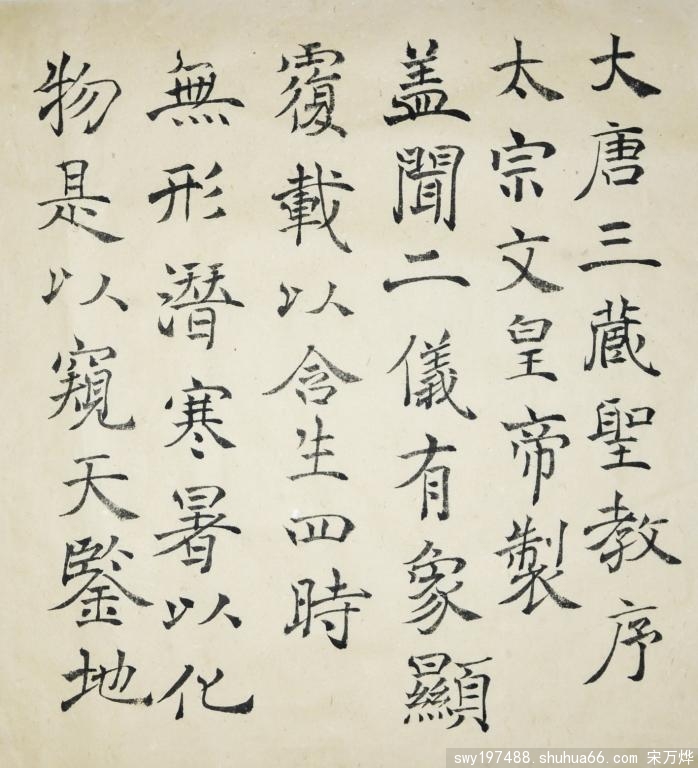 大唐三藏聖教序
太宗文皇帝製
盖聞二儀有象顯
覆載以含生四時
無形潛寒暑以化
物是以窺天鑒地
swy197488.shuhua66.com 宋万烨